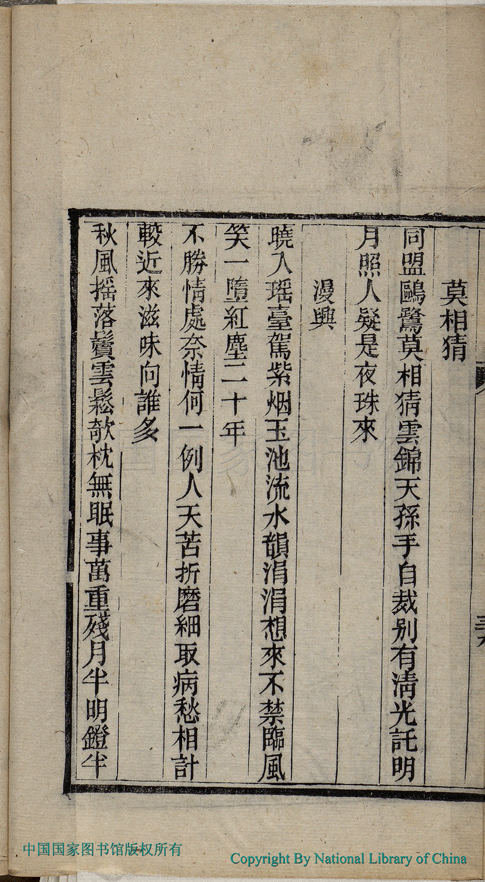 莫相猜
同盟鷗鷺莫相猜雲錦天孫手自裁别有淸光託明
月照人疑是夜珠來
漫興
曉入瑶臺駕紫烟玉池流水韻涓涓想來不禁臨風
笑一墮紅塵二十年
不勝情處奈情何一例人天苦折磨細取病愁相計
較近來滋味向誰多
秋風摇落鬢雲鬆欹枕無眠事萬重殘月半明鐙半
中国国家图书馆版权所有
Copyright By National Library of China